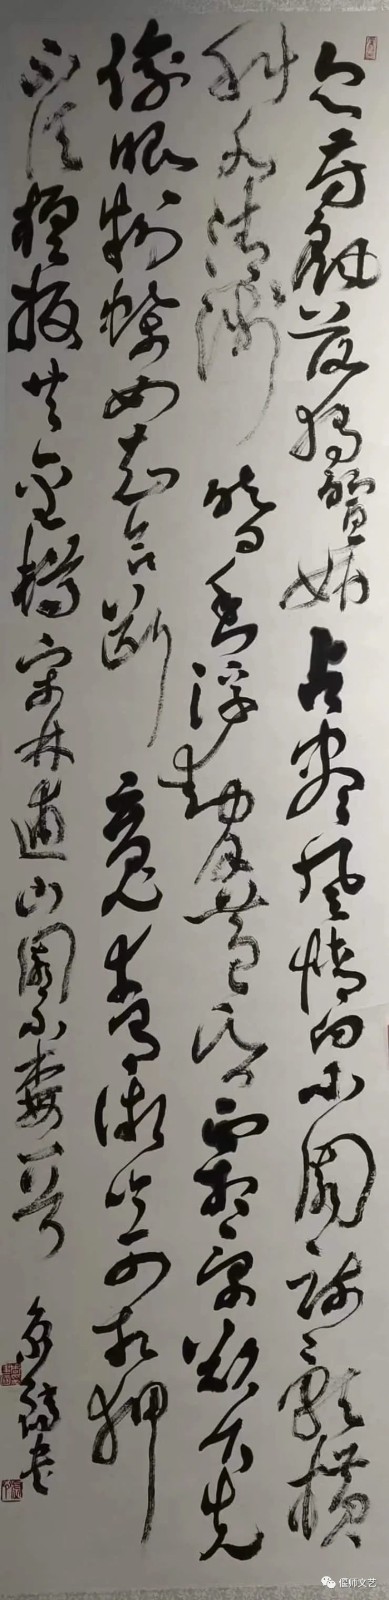 众芳摇落独暄妍占尽风情向小园疏影横
斜水清浅暗香浮动月黄昏霜禽欲下先
偷眼粉蝶如知合断魂幸有微吟可相狎
不须檀板共金樽宋林逋山园小梅一首
书
偃师文艺